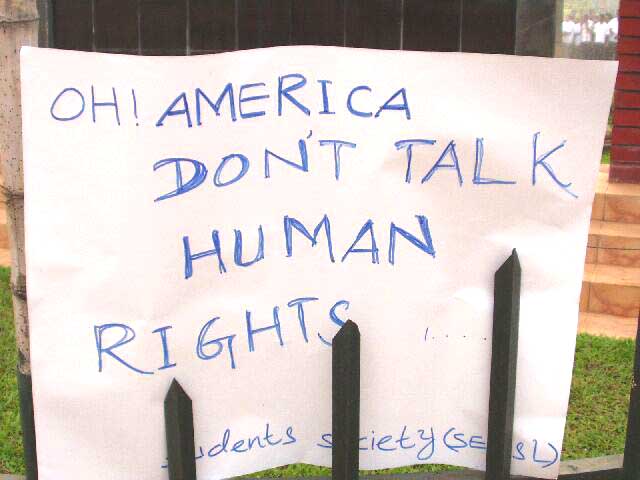 OH! AMERICA
DON'T TALK
HUMAN
RIGHTS .....
students society